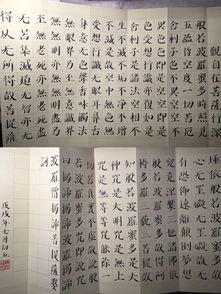 觀自在菩薩行深
般若波羅蜜多時照見
五蘊皆空度一切苦厄
舍利子色不異空空不
異色色即是空空即是
色受想行識亦復如是
舍利子是諸法空相不
生不滅不垢不淨不增
不減是故空中無色無
受想行識無眼耳鼻舌
身意無色聲香味觸法
無眼界乃至無意識界
無無明亦無無明盡乃
至無老死亦無老死盡
無苦集滅道無智亦無
得以无所得故菩提薩
埵依般若波羅蜜多故
心無罣礙無罣礙故無
有恐怖遠離顛倒夢想
究竟涅槃三世諸佛依
般若波羅蜜多故得阿
耨多羅三藐三菩提故
知般若波羅蜜多是大
神咒是大明咒是無上
咒是無等等咒能除一
切苦真實不虛故說般
若波羅蜜多咒即說咒
曰揭諦揭諦波羅揭諦
波羅僧揭諦菩提薩婆
訶
戊戌年七月初五